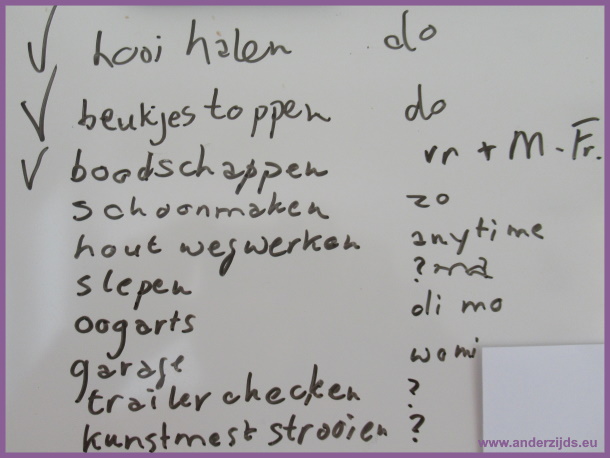 hooi halen do
beukjes toppen do
boodschappen vr + M - Fr.
schoonmaken zo
hout wegwerken anytime
slepen ? ma
oogarts di mo
garage womi
trailer checken ?
kunstmest strooien ?
www.anderzijds.eu